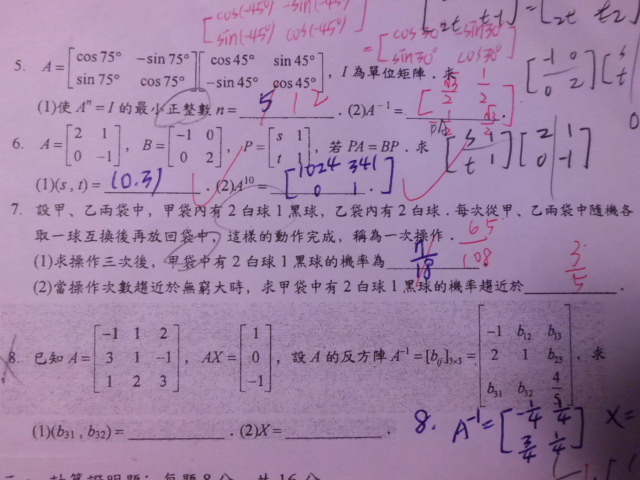 [cos(-45°) -sin(-45°)
sin(-45°) cos(-45°)]
= [cos30° -sin30°
sin30° cos30°]
5. A = [cos 75° -sin 75°; sin 75° cos 75°][cos 45° sin 45°; -sin 45° cos 45°]，I 為單位矩陣．求
(1)使 Aⁿ = I 的最小正整數 n = 12 ．(2)A⁻¹ =
6. A = [2 1; 0 -1]，B = [-1 0; 0 2]，P = [s 1; t 1]，若 PA = BP．求
[s 1; t 1][2 1; 0 -1]
(1)(s , t) = (0.3) ．(2)A¹⁰ = [1024 341; 0 1]．
7. 設甲、乙兩袋中，甲袋內有 2 白球 1 黑球，乙袋內有 2 白球．每次從甲、乙兩袋中隨機各
取一球互換後再放回袋中，這樣的動作完成，稱為一次操作．
(1)求操作三次後，甲袋中有 2 白球 1 黑球的機率為 65/108
(2)當操作次數趨近於無窮大時，求甲袋中有 2 白球 1 黑球的機率趨近於 3/5 ．
8. 已知 A = [-1 1 2; 3 1 -1; 1 2 3]，AX = [1; 0; -1]，設 A 的反方陣 A⁻¹ = [bᵢⱼ]₃ₓ₃ = [-1 b₁₂ b₁₃; 2 1 b₂₃; b₃₁ b₃₂ 4/5]，求
(1)(b₃₁ , b₃₂) = ．(2)X = ．
8. A⁻¹ = [-1/4 1/4; 3/4 1/4] X =